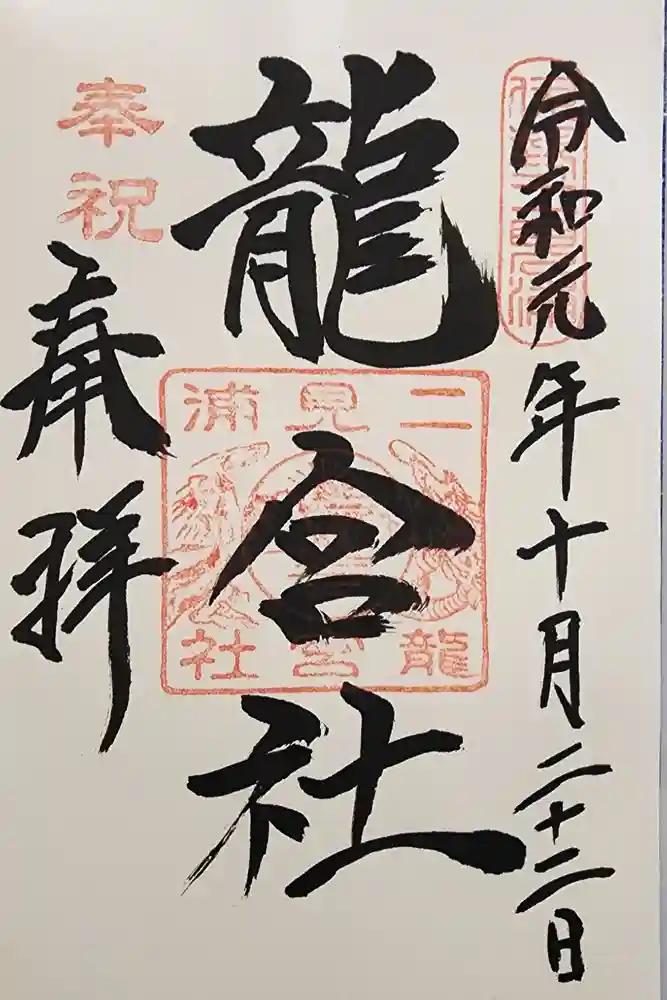 令和元年十月二十二日
龍宮社
奉拝
奉祝
二見浦
龍宮社